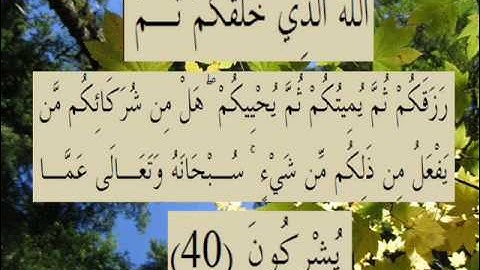 الله الذِي خَلَقَكُمْ ثُــمَّ
رَزَقَكُمْ ثُمَّ يُمِيتُكُمْ ثُمَّ يُحْيِيكُمْ ۖ هَلْ مِن شُرَكَائِكُم مَّن
يَفْعَلُ مِن ذَلِكُم مِّن شَيْءٍ ۚ سُــبْحَانَهُ وَتَعَــالَى عَمَّــا
يُشْرِكُونَ (40)